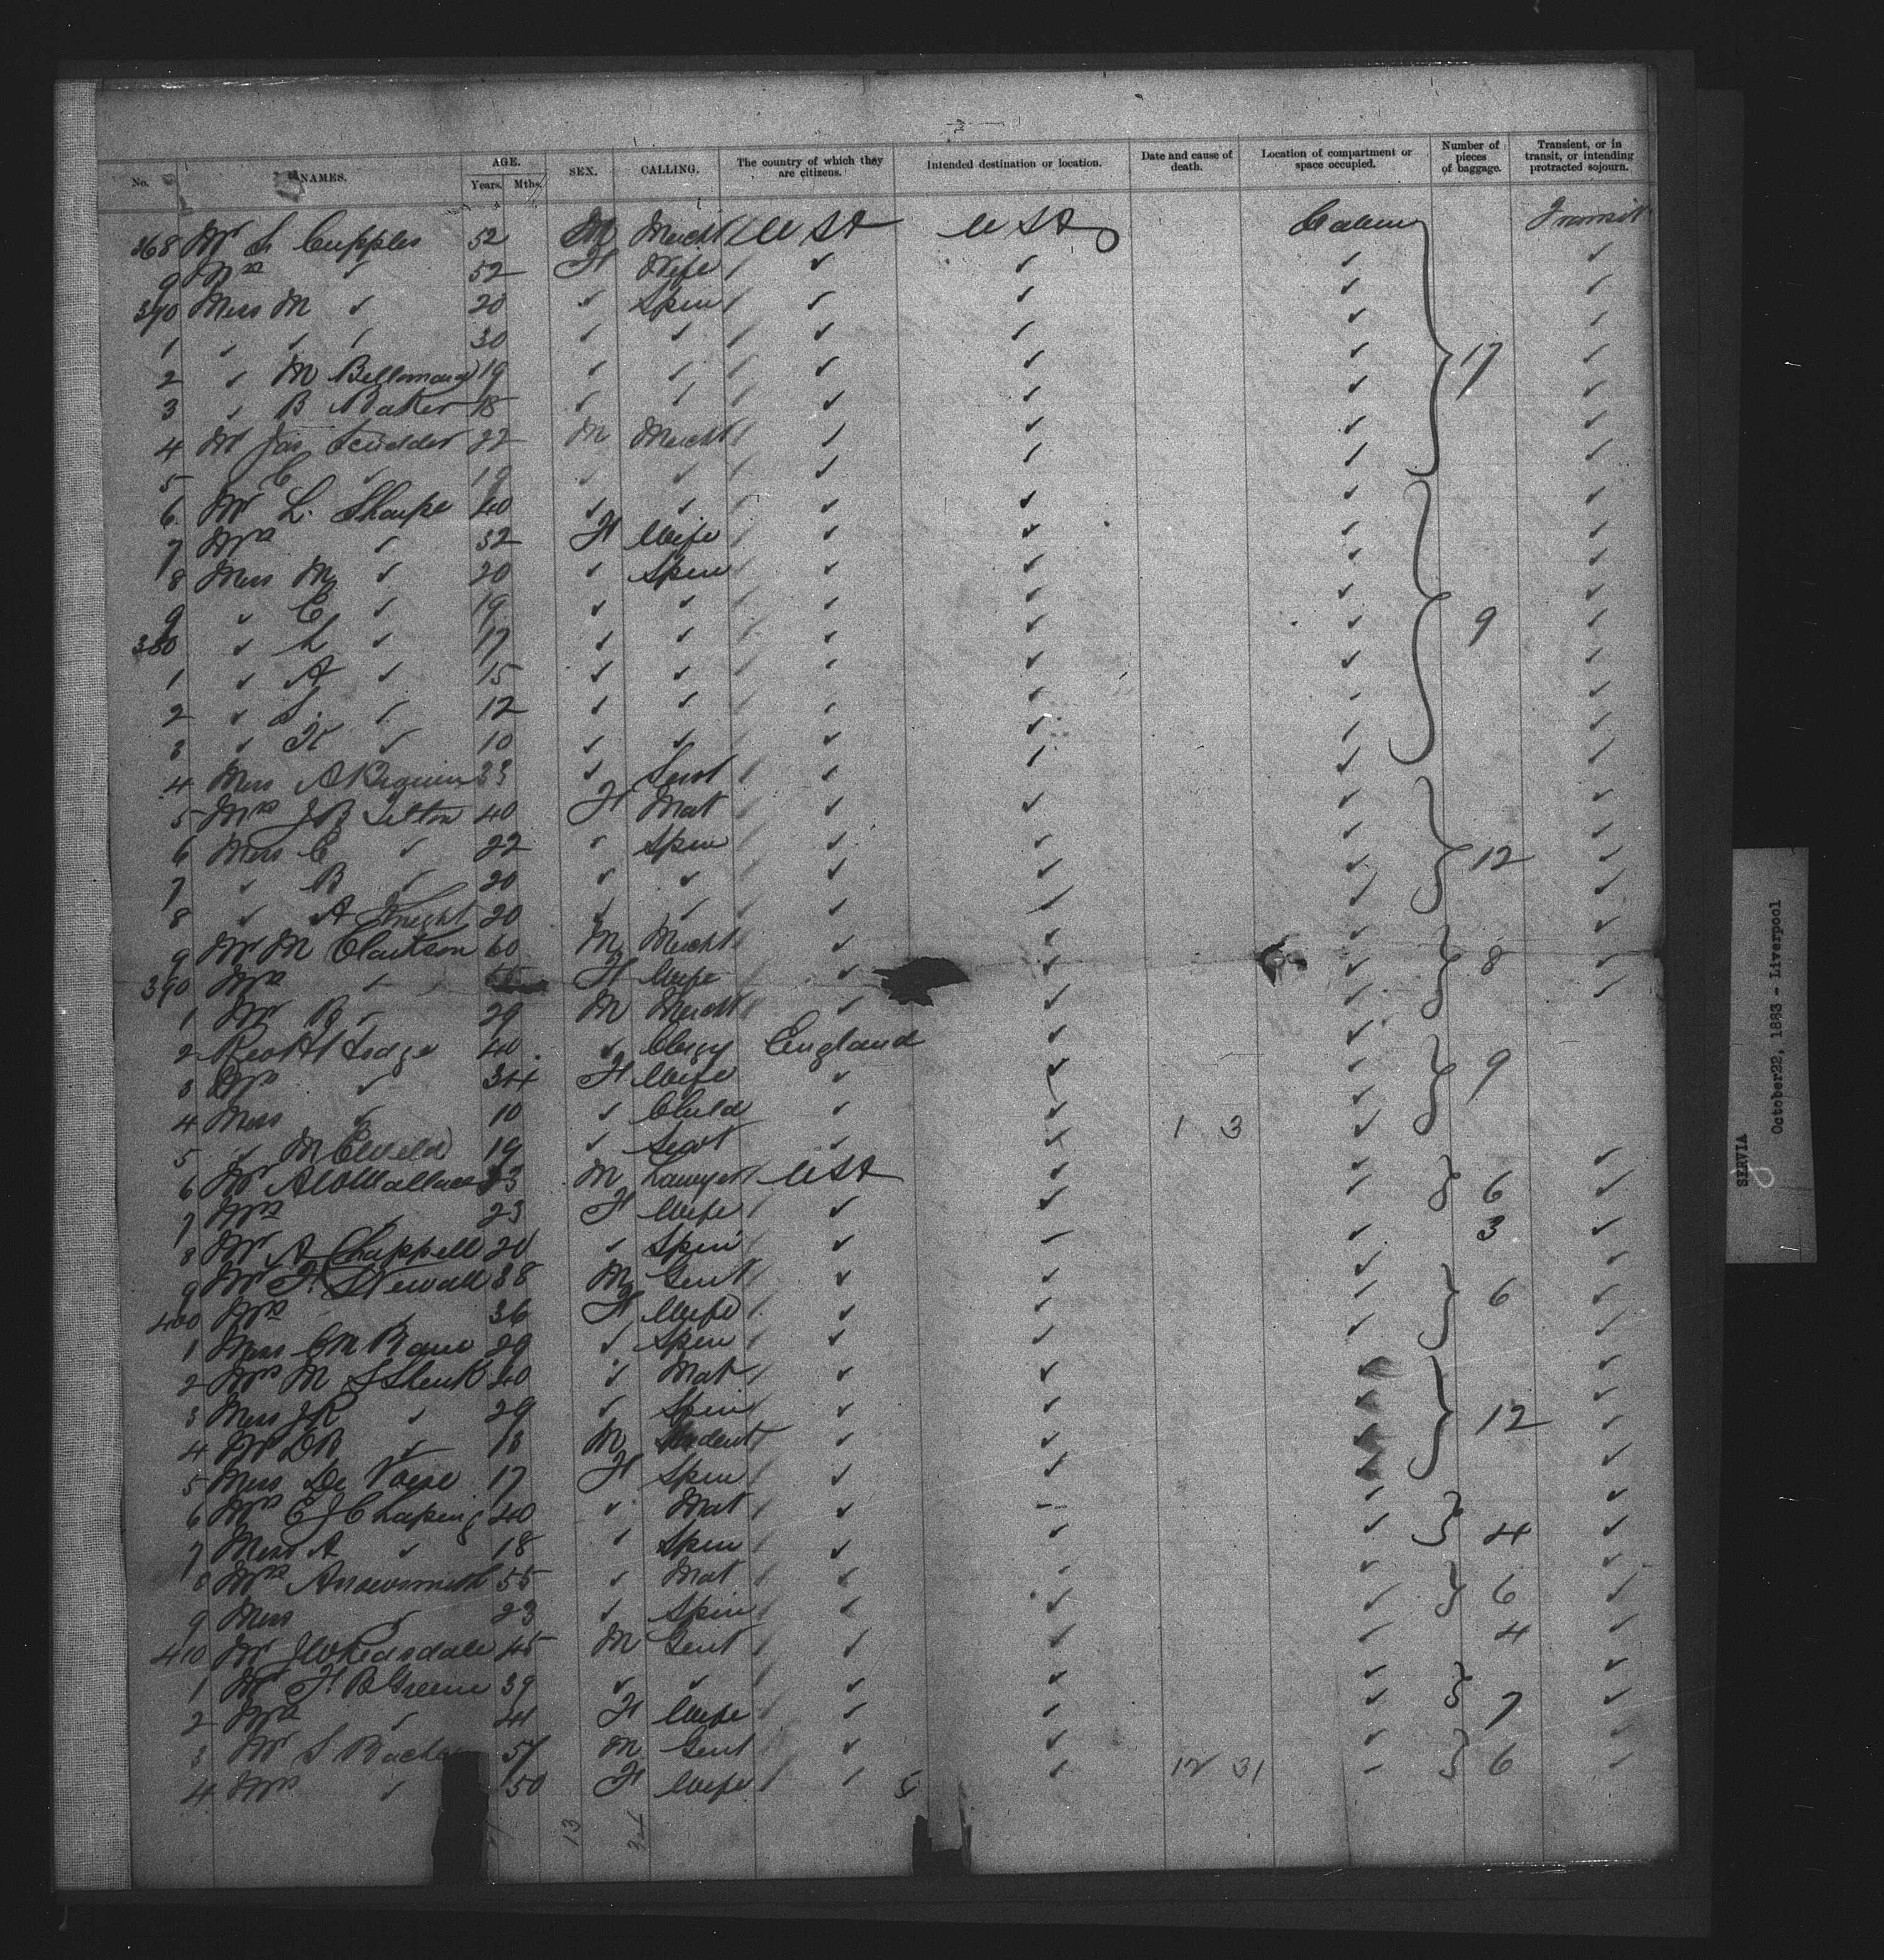 No. NAMES. AGE. Years. Mths. SEX. CALLING. The country of which they are citizens. Intended destination or location. Date and cause of death. Location of compartment or space occupied. Number of pieces of baggage. Transient, or in transit, or intending protracted sojourn.
368 Mr S Cupples 52 M Mercht USA USA Transit
9 Mrs ✓ 52 F Wife ✓ ✓ ✓ ✓
370 Miss M ✓ 20 ✓ Spin ✓ ✓ ✓ ✓
1 ✓ ✓ ✓ 30 ✓ ✓ ✓ ✓ ✓ ✓
2 ✓ M 19 ✓ ✓ ✓ ✓ ✓ 17 ✓
3 ✓ B Baker 18 ✓ ✓ ✓ ✓ ✓ ✓
4 Mr Jas Scudder 22 M Mercht ✓ ✓ ✓ ✓
5 C ✓ 19 ✓ ✓ ✓ ✓ ✓ ✓
6 Mr L. Sharpe 40 ✓ ✓ ✓ ✓ ✓ ✓
7 Mrs ✓ 32 F Wife ✓ ✓ ✓ ✓
8 Miss M ✓ 20 ✓ Spin ✓ ✓ ✓ ✓
9 ✓ C ✓ 19 ✓ ✓ ✓ ✓ ✓ ✓
380 ✓ L ✓ 17 ✓ ✓ ✓ ✓ ✓ 9 ✓
1 ✓ A ✓ 15 ✓ ✓ ✓ ✓ ✓ ✓
2 ✓ S. ✓ 12 ✓ ✓ ✓ ✓ ✓ ✓
3 ✓ K ✓ 10 ✓ ✓ ✓ ✓ ✓ ✓
4 Miss A 33 ✓ Servt ✓ ✓ ✓ ✓
5 Mrs J B Tilton 40 F Mat ✓ ✓ ✓ ✓
6 Miss C ✓ 22 ✓ Spin ✓ ✓ ✓ 12 ✓
7 ✓ B ✓ 20 ✓ ✓ ✓ ✓ ✓ ✓
8 ✓ A Knight 20 ✓ ✓ ✓ ✓ ✓ ✓
9 Mr M 60 M Mercht ✓ ✓ ✓ 8 ✓
390 Mrs ✓ F Wife ✓ ✓ ✓ ✓
1 Mr B ✓ 29 M Mercht ✓ ✓ ✓
2 Rev Lodge 40 ✓ Clergy England ✓ ✓ 9
3 Mrs ✓ 34 F Wife ✓ ✓ ✓
4 Miss ✓ 10 ✓ Child ✓ ✓ ✓
5 ✓ M 19 ✓ Servt ✓ ✓ 1 3 ✓
6 Mr Wallace 33 M Lawyer USA ✓ ✓ 6 ✓
7 Mrs ✓ 23 F Wife ✓ ✓ ✓ ✓
8 Mr A Chappell 20 ✓ Spin ✓ ✓ ✓ 3 ✓
9 Mr F. Newall 38 M Gent ✓ ✓ ✓ 6 ✓
400 Mrs ✓ 36 F Wife ✓ ✓ ✓ ✓
1 Miss C M 29 ✓ Spin ✓ ✓ ✓ ✓
2 Mrs M S Shenk 40 ✓ Mat ✓ ✓ ✓ ✓
3 Miss J R ✓ 29 ✓ Spin ✓ ✓ ✓ 12 ✓
4 Mr D R ✓ 13 M Student ✓ ✓ ✓ ✓
5 Miss De 17 F Spin ✓ ✓ ✓ ✓
6 Mrs E J Chapin 40 ✓ Mat ✓ ✓ ✓
7 Miss A ✓ 18 ✓ Spin ✓ ✓ ✓ 4 ✓
8 Mrs Arrowsmith 55 ✓ Mat ✓ ✓ ✓ ✓
9 Miss ✓ 23 ✓ Spin ✓ ✓ ✓ 6 ✓
410 Mr 45 M Gent ✓ ✓ ✓ 4 ✓
1 Mr F. B Greene 39 ✓ ✓ ✓ ✓ ✓ ✓
2 Mrs ✓ 41 F Wife ✓ ✓ ✓ 7 ✓
3 Mr S 57 M Gent ✓ ✓ ✓ ✓
4 Mrs ✓ 50 F Wife ✓ ✓ 12 31 6 ✓
13
SERVIA
October22, 1883 - Liverpool